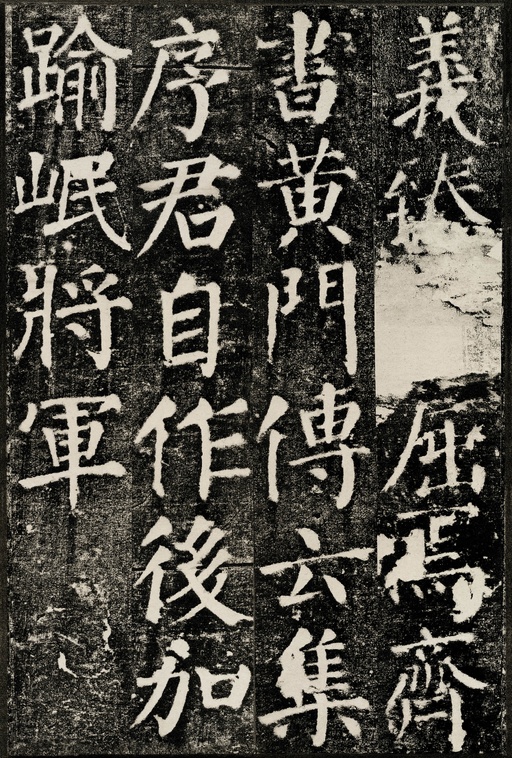 義屈焉齊
書黃門傳云集
序君自作後加
踰岷將軍